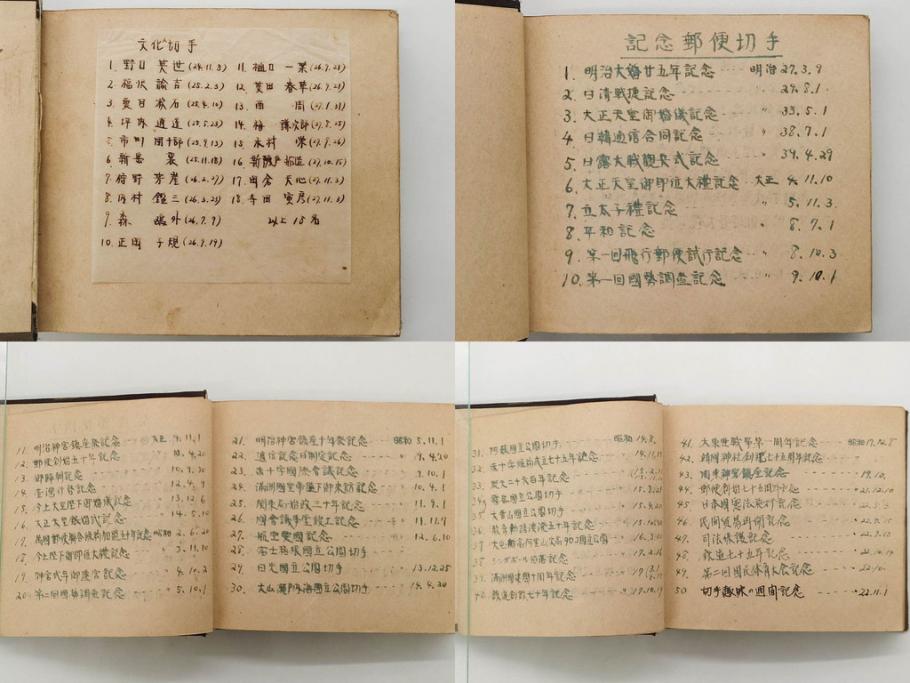 文化切手
1. 野口 英世 (24.11.3)
2. 福沢 諭吉 (25.2.3)
3. 夏目 漱石 (25.4.10)
4. 坪内 逍遥
5. 市川 団十郎 (25.9.13)
6. 新島 襄 (25.11.18)
7. 狩野 芳崖 (26.2.27)
8. 内村 鑑三 (26.3.23)
9. 森 鴎外 (26.7.9)
10. 正岡 子規 (26.9.19)
11. 樋口 一葉
12. 菱田 春草
13. 西 周 (27.1.31)
14. 梅 謙次郎 (27.8.25)
15. 木村 栄 (27.9.26)
16. 新渡戸 稲造 (27.10.15)
17. 岡倉 天心 (27.11.3)
18. 寺田 寅彦 (27.11.3)
以上 18名
記念郵便切手
1. 明治大婚廿五年記念 明治27.3.9
2. 日清戦捷記念 〃 29.8.1
3. 大正天皇御婚儀記念 〃 33.5.1
4. 日韓通信合同記念 〃 38.7.1
5. 日露大戦観兵式記念 〃 39.4.29
6. 大正天皇御即位大禮記念 大正 4.11.10
7. 立太子禮記念 〃 5.11.3
8. 平和記念 〃 8.7.1
9. 第一回飛行郵便試行記念 〃 8.10.3
10. 第一回國勢調査記念 〃 9.10.1
11. 明治神宮鎮座祭記念 大正 9.11.1
12. 郵便創始五十年記念 10.4.20
13. 御帰朝記念
14. 台湾行啓記念
15. 今上天皇陛下御婚儀記念
16. 大正天皇銀婚式記念 14.5.10
17. 萬國郵便聯合加盟五十年記念 昭和 2.6.20
18. 今上陛下御即位大禮記念 3.11.10
19. 神宮式年御遷宮記念 4.10.2
20. 第二回國勢調査記念 5.10.1
21. 明治神宮鎮座十年祭記念 昭和 5.11.1
22. 逓信記念日制定記念 9.4.20
23. 赤十字國際會議記念 9.10.1
24. 満洲國皇帝陛下御来訪記念 10.4.
25. 関東局始政三十年記念 11.9.1
26. 國會議事堂竣工記念 11.11.7
27. 航空愛國記念 12.6.10
28. 富士箱根國立公園切手
29. 日光國立公園切手 13.12.25
30. 大山瀬戸内海國立公園切手 14.4.20
31. 阿蘇國立公園切手 昭和 14.8.
32. 赤十字條約成立七十五年記念
33. 紀元二千六百年記念
34. 霧島國立公園切手
35. 大雪山國立公園切手
36. 教育勅語渙発五十年記念
37. 大屯新高阿里山次高タロコ國立公園
38. シンガポール陥落記念
39. 満洲國建國十周年記念
40. 鉄道創設七十年記念 17.10.14
41. 大東亜戦争第一周年記念 昭和17.12.8
42. 靖國神社創建七十五年記念
43. 関東神宮鎮座記念 19.10.
44. 郵便創始七十五周年記念 21.12.12
45. 日本國憲法施行記念
46. 民間貿易再開記念
47. 司法保護記念
48. 鉄道七十五年記念 22.10.14
49. 第二回國民体育大会記念 22.10.
50. 切手趣味の週間記念 22.11.1